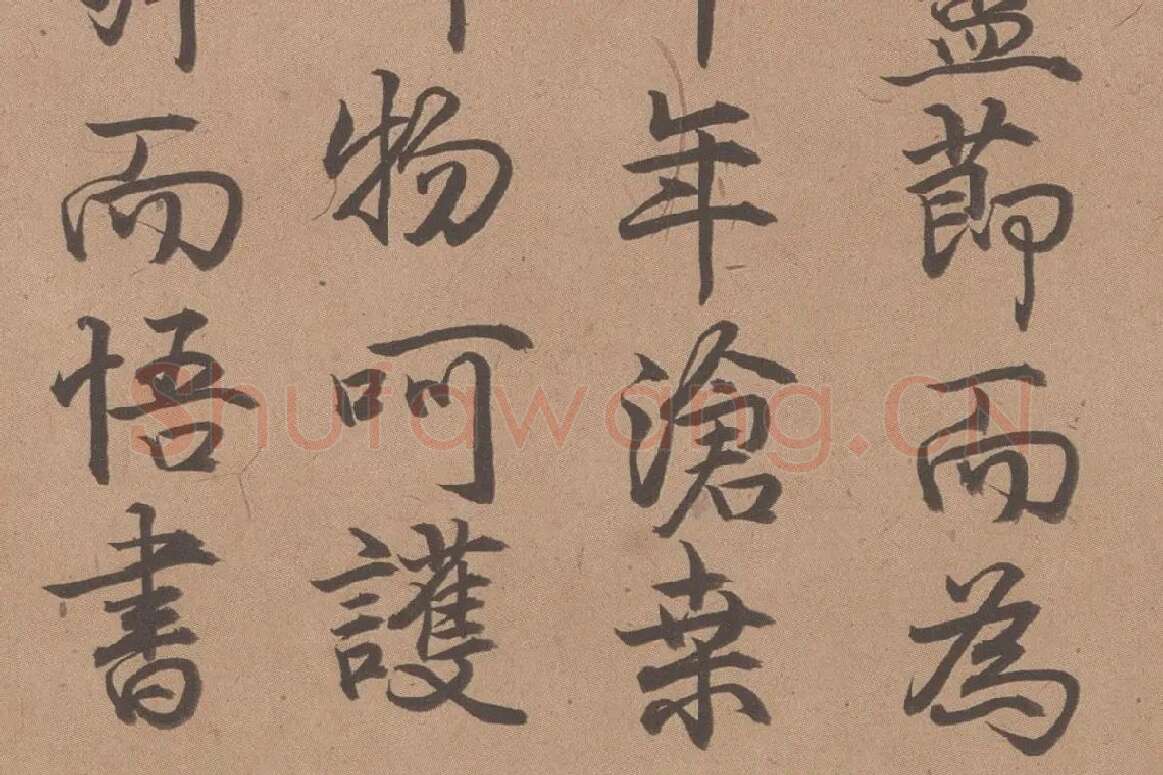 節而為
年滄桑
物呵護
而悟書
Shufawang.CN